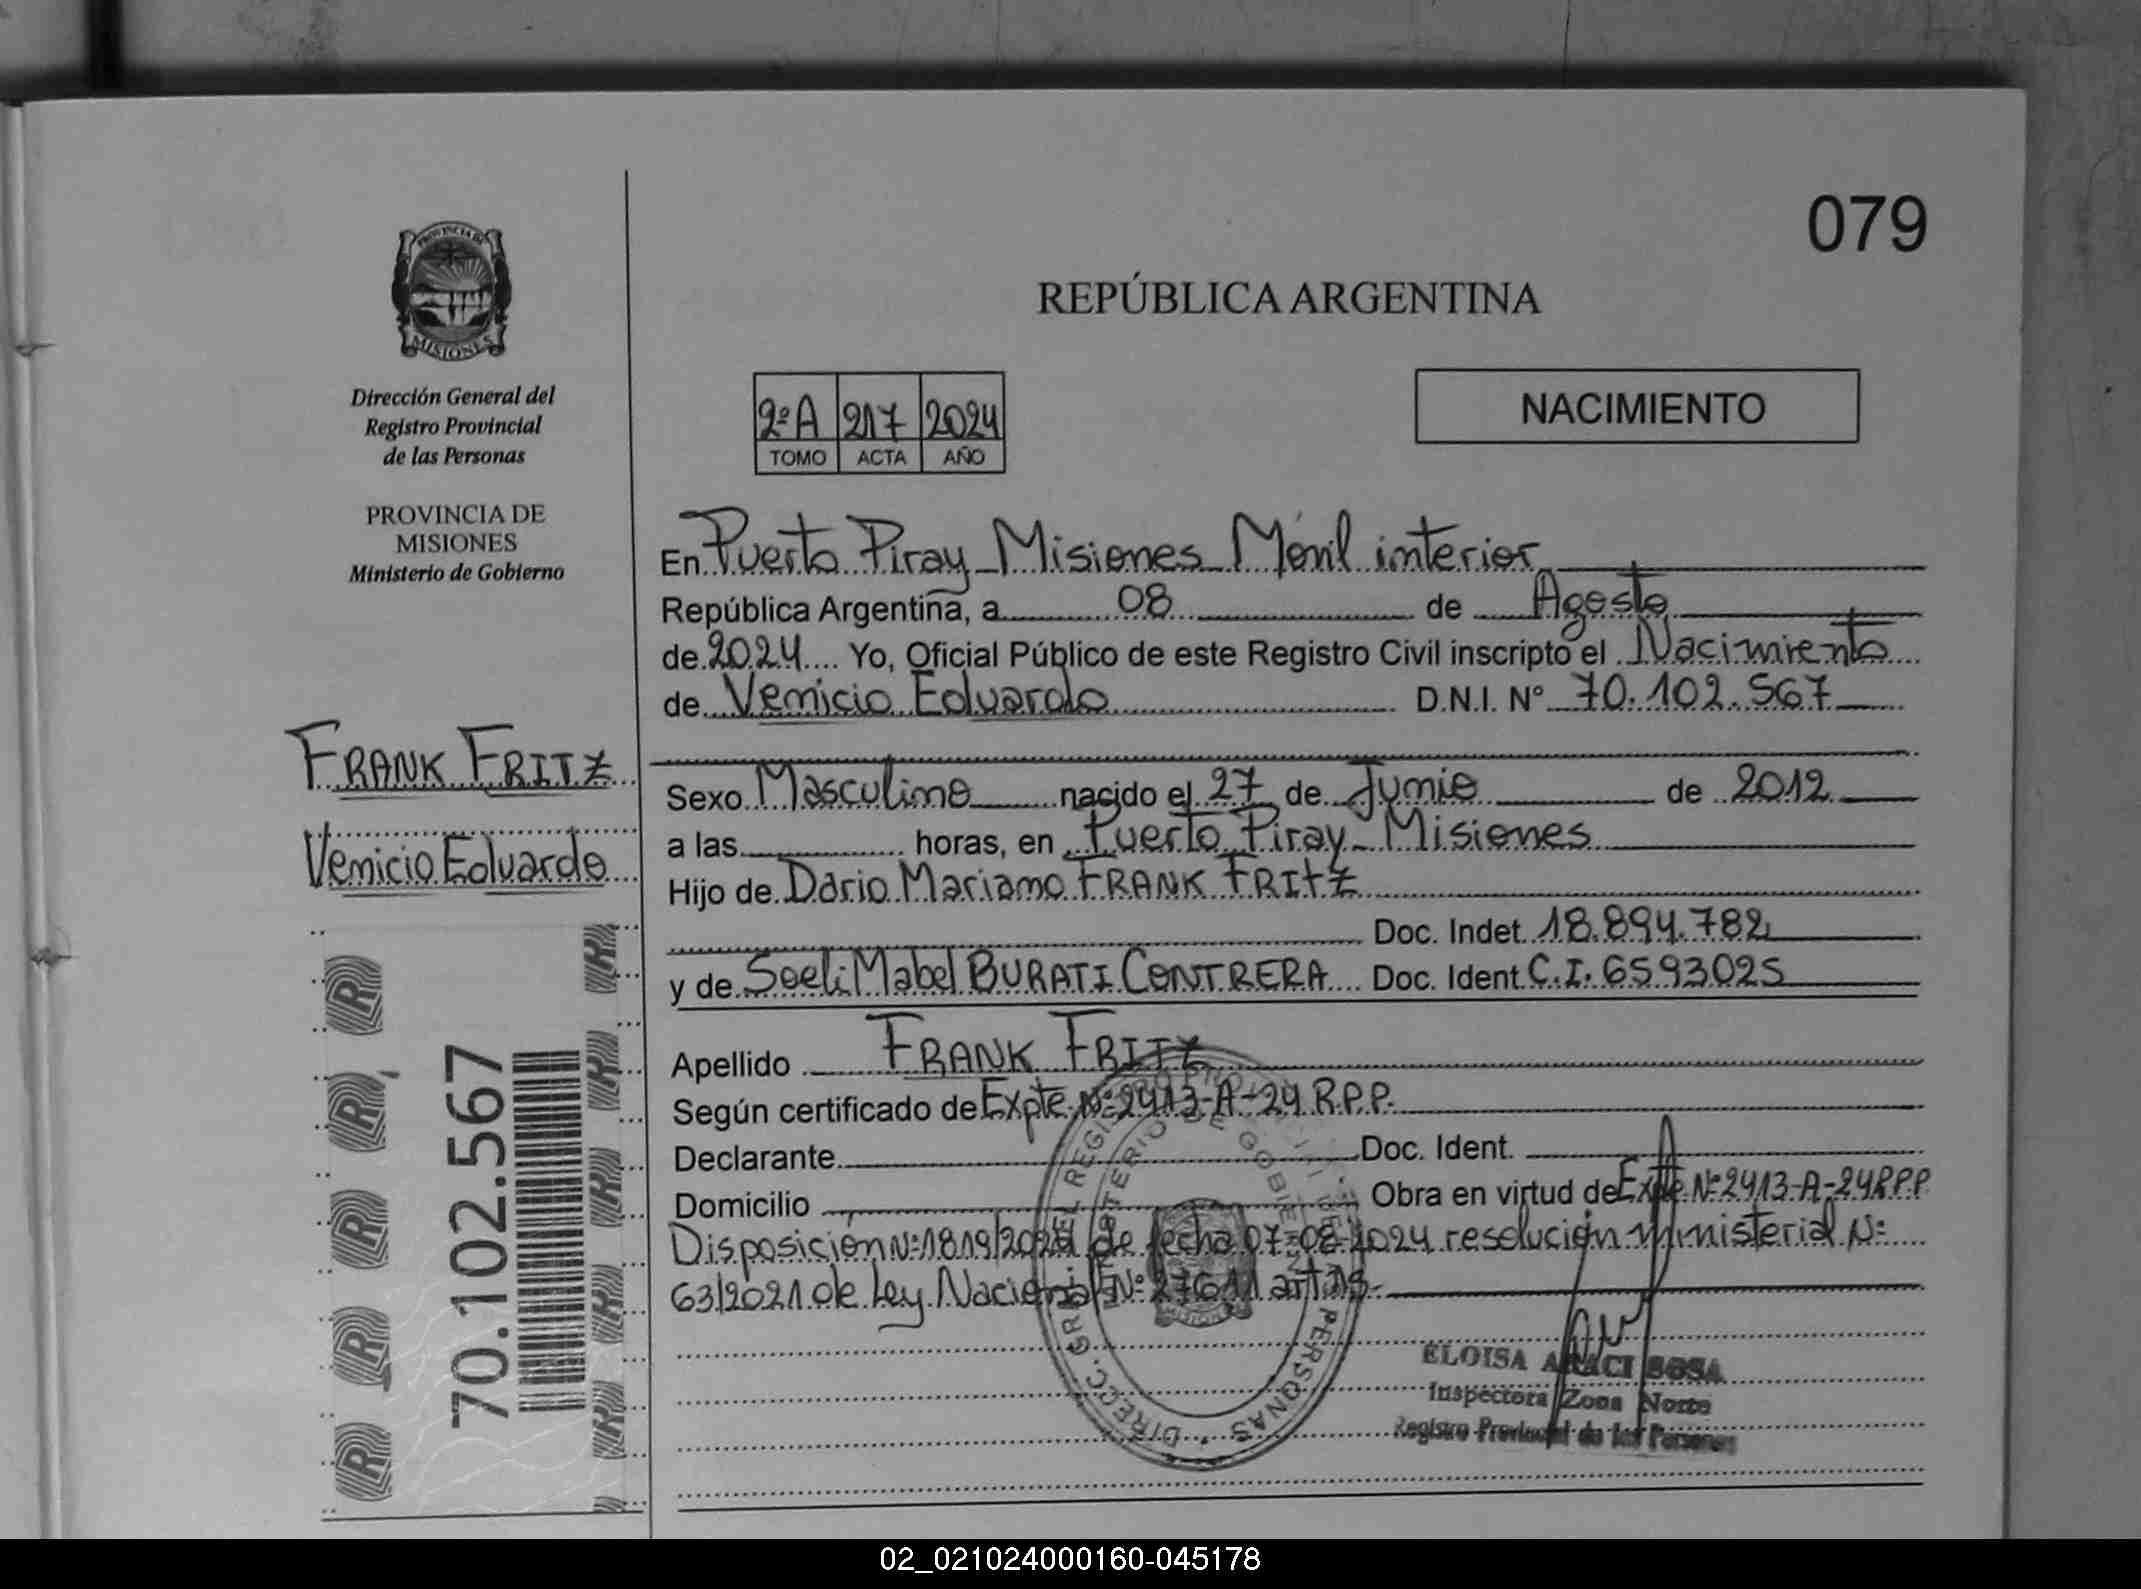 079
PROVINCIA DE
MISIONES
Dirección General del
Registro Provincial
de las Personas
PROVINCIA DE
MISIONES
Ministerio de Gobierno
REPÚBLICA ARGENTINA
2ºA 217 2024
TOMO ACTA AÑO
NACIMIENTO
En Puerto Piray - Misiones Móvil interior
República Argentina, a 08 de Agosto
de 2024 Yo, Oficial Público de este Registro Civil inscripto el Nacimiento
de Venicio Eduardo D.N.I. Nº 70.102.567
FRANK FRITZ
Venicio Eduardo
Sexo Masculino nacido el 27 de Junio de 2012
a las horas, en Puerto Piray - Misiones
Hijo de Dario Mariano FRANK FRITZ
Doc. Indet. 18.894.782
y de Soeli Mabel BURATI CONTRERA Doc. Ident. C.I. 6593025
Apellido FRANK FRITZ
Según certificado de Expte Nº 2413-A-24 R.P.P.
Declarante Doc. Ident.
Domicilio Obra en virtud de Expte Nº 2413-A-24 R.P.P
Disposición Nº 1819/2024 de fecha 07-08-2024 resolución ministerial Nº
63/2021 de Ley Nacional Nº 27611 art
70.102.567
ELOISA ARACI SOSA
Inspectora Zona Norte
Registro Provincial de las Personas
02_021024000160-045178